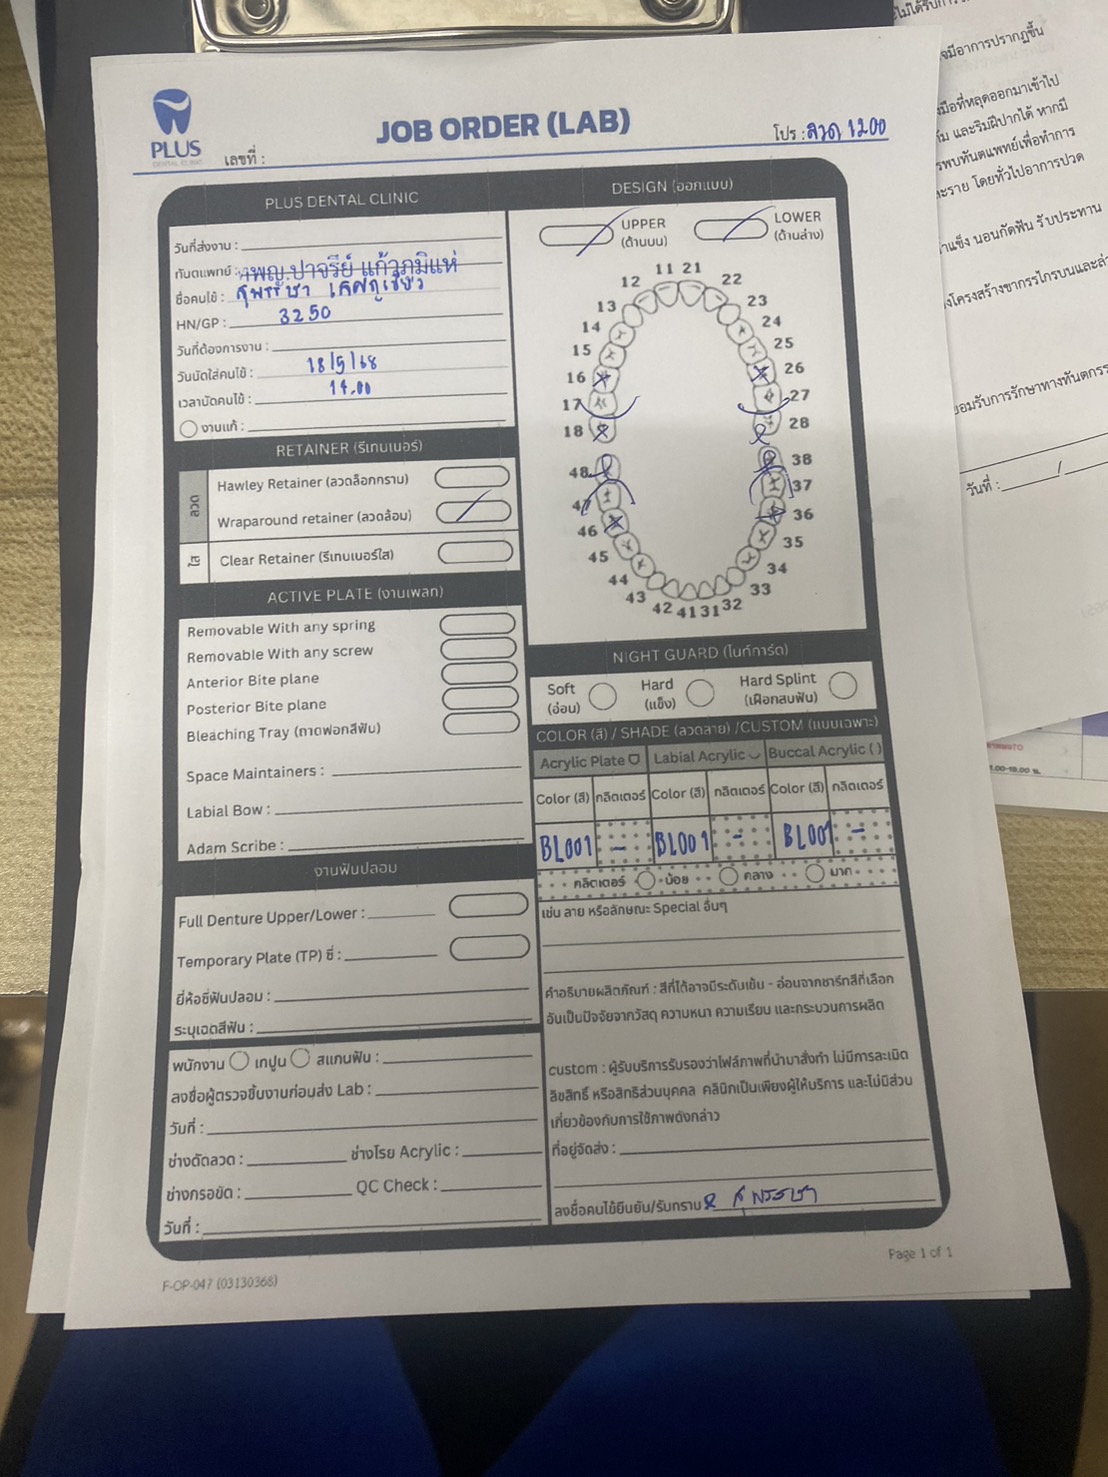 PLUS
DENTAL CLINIC
เลขที่ :
JOB ORDER (LAB)
โปร : ลวด 1200
PLUS DENTAL CLINIC
วันที่ส่งงาน :
ทันตแพทย์ : ทพญ.ปาจรีย์ แก้วภูมิแห่
ชื่อคนไข้ : สุพรรษา
HN/GP : 3250
วันที่ต้องการงาน :
วันนัดใส่คนไข้ : 18/5/68
เวลานัดคนไข้ : 14.00
งานแก้ :
RETAINER (รีเทนเนอร์)
ลวด
Hawley Retainer (ลวดล็อกกราม)
Wraparound retainer (ลวดล้อม)
ใส
Clear Retainer (รีเทนเนอร์ใส)
ACTIVE PLATE (งานเพลท)
Removable With any spring
Removable With any screw
Anterior Bite plane
Posterior Bite plane
Bleaching Tray (ถาดฟอกสีฟัน)
Space Maintainers :
Labial Bow :
Adam Scribe :
งานฟันปลอม
Full Denture Upper/Lower :
Temporary Plate (TP) ซี่ :
ยี่ห้อซี่ฟันปลอม :
ระบุเฉดสีฟัน :
พนักงาน เทปูน สแกนฟัน :
ลงชื่อผู้ตรวจชิ้นงานก่อนส่ง Lab :
วันที่ :
ช่างดัดลวด : ช่างโรย Acrylic :
ช่างกรอขัด : QC Check :
วันที่ :
DESIGN (ออกแบบ)
UPPER
(ด้านบน)
LOWER
(ด้านล่าง)
11 21
12 22
13 23
14 24
15 25
16 26
17 27
18 28
48 38
47 37
46 36
45 35
44 34
43 33
42 41 31 32
NIGHT GUARD (ไนท์การ์ด)
Soft
(อ่อน)
Hard
(แข็ง)
Hard Splint
(เฝือกสบฟัน)
COLOR (สี) / SHADE (ลวดลาย) /CUSTOM (แบบเฉพาะ)
Acrylic Plate Labial Acrylic Buccal Acrylic ( )
Color (สี) กลิตเตอร์ Color (สี) กลิตเตอร์ Color (สี) กลิตเตอร์
BL001 - BL001 - BL001 -
กลิตเตอร์ น้อย กลาง มาก
เช่น ลาย หรือลักษณะ Special อื่นๆ
คำอธิบายผลิตภัณฑ์ : สีที่ได้อาจมีระดับเข้ม - อ่อนจากชาร์ทสีที่เลือก
อันเป็นปัจจัยจากวัสดุ ความหนา ความเรียบ และกระบวนการผลิต
custom : ผู้รับบริการรับรองว่าไฟล์ภาพที่นำมาสั่งทำ ไม่มีการละเมิด
ลิขสิทธิ์ หรือสิทธิส่วนบุคคล คลินิกเป็นเพียงผู้ให้บริการ และไม่มีส่วน
เกี่ยวข้องกับการใช้ภาพดังกล่าว
ที่อยู่จัดส่ง :
ลงชื่อคนไข้ยืนยัน/รับทราบ สุพรรษา
Page 1 of 1
F-OP-047 (03130368)
จมีอาการปรากฏขึ้น
มือที่หลุดออกมาเข้าไป
และริมฝีปากได้ หากมี
รพบทันตแพทย์เพื่อทำการ
ะราย โดยทั่วไปอาการปวด
นแข็ง นอนกัดฟัน รับประทาน
งโครงสร้างขากรรไกรบนและล่า
ยอมรับการรักษาทางทันตกรร
วันที่ : /